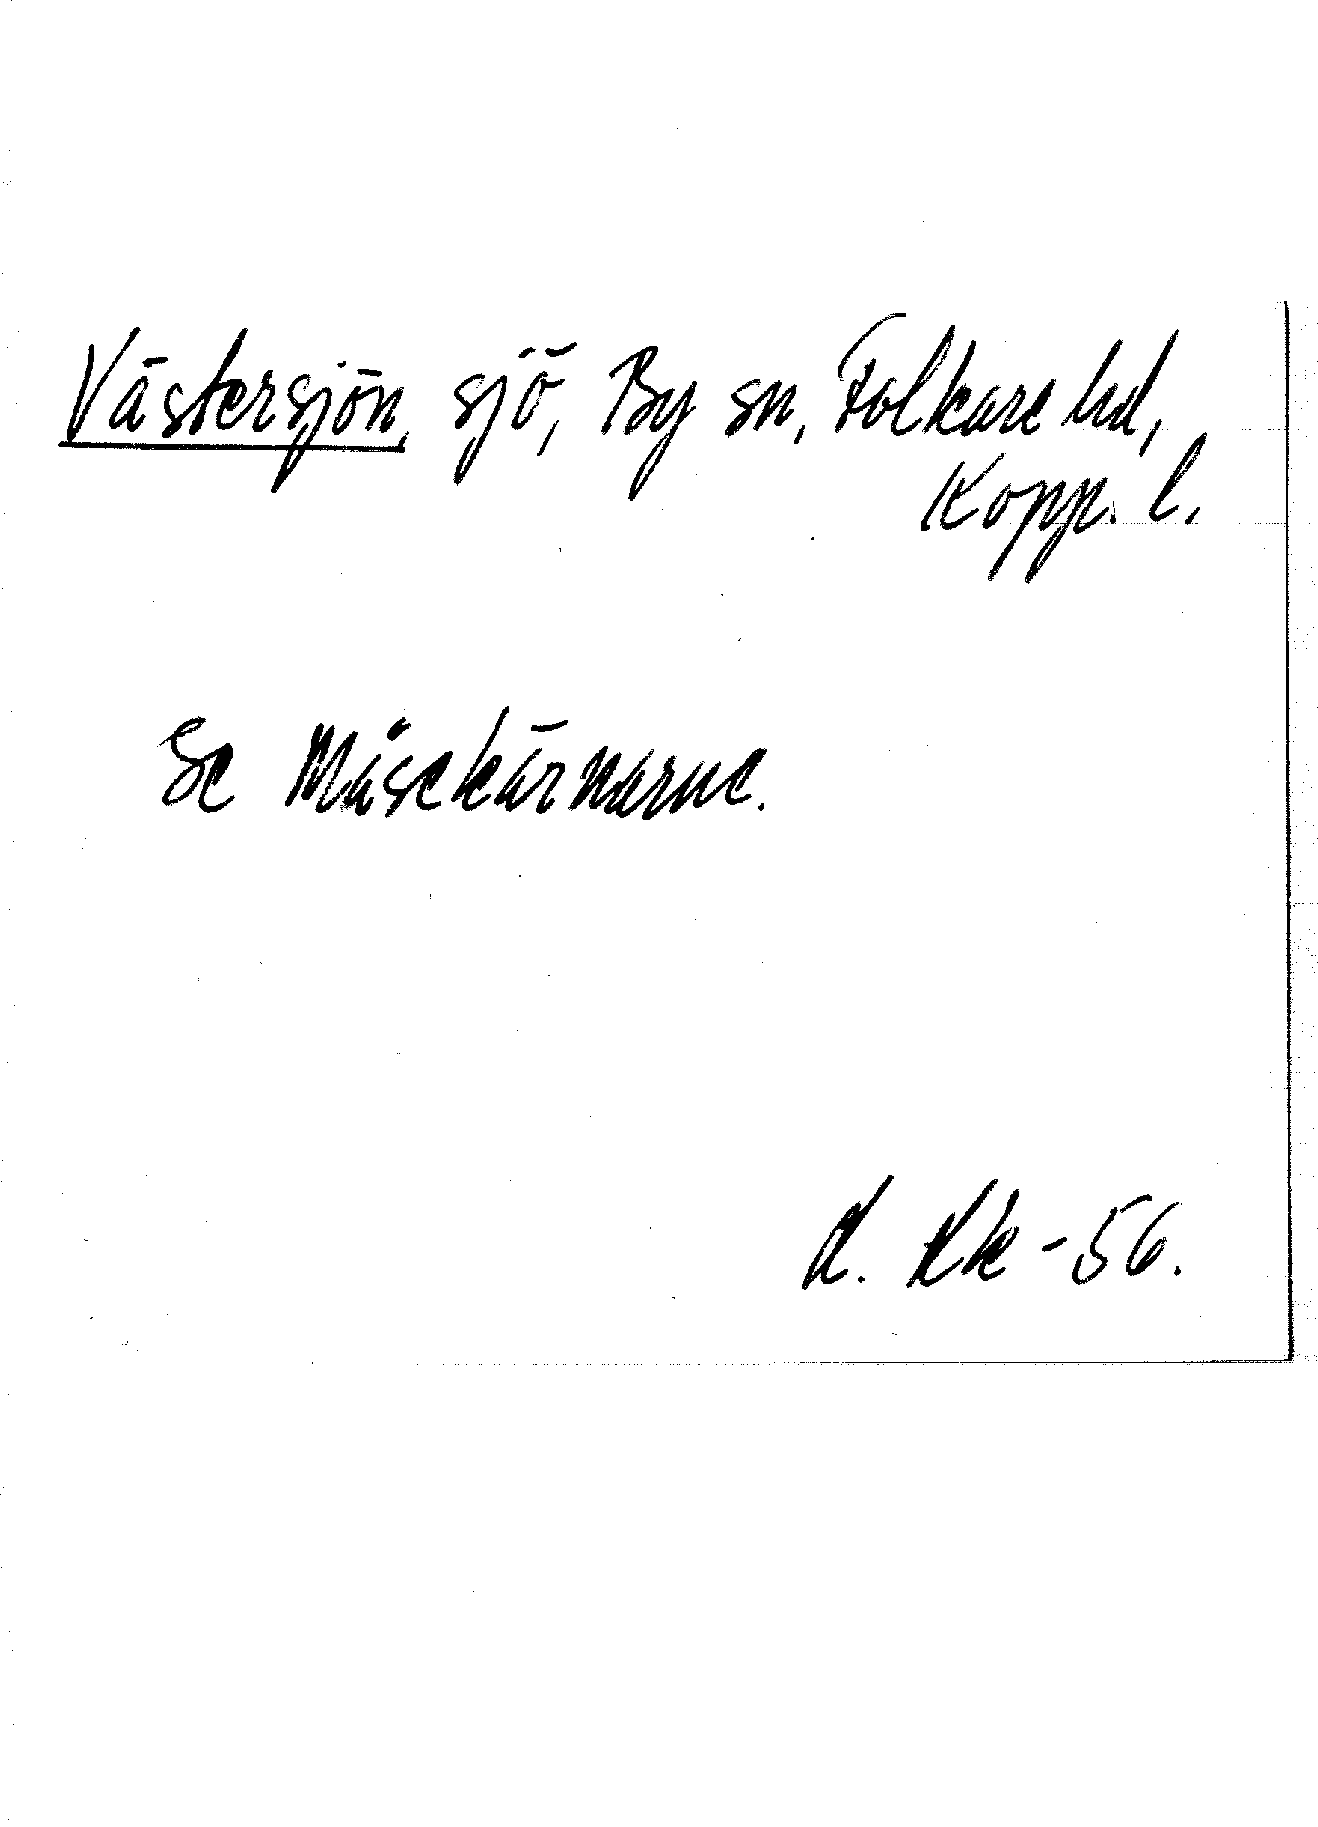 Västersjön, sjö, By sn, Folkare hd,
Kopp. l.
Se Måsekärnarne.
R. Rk -56.